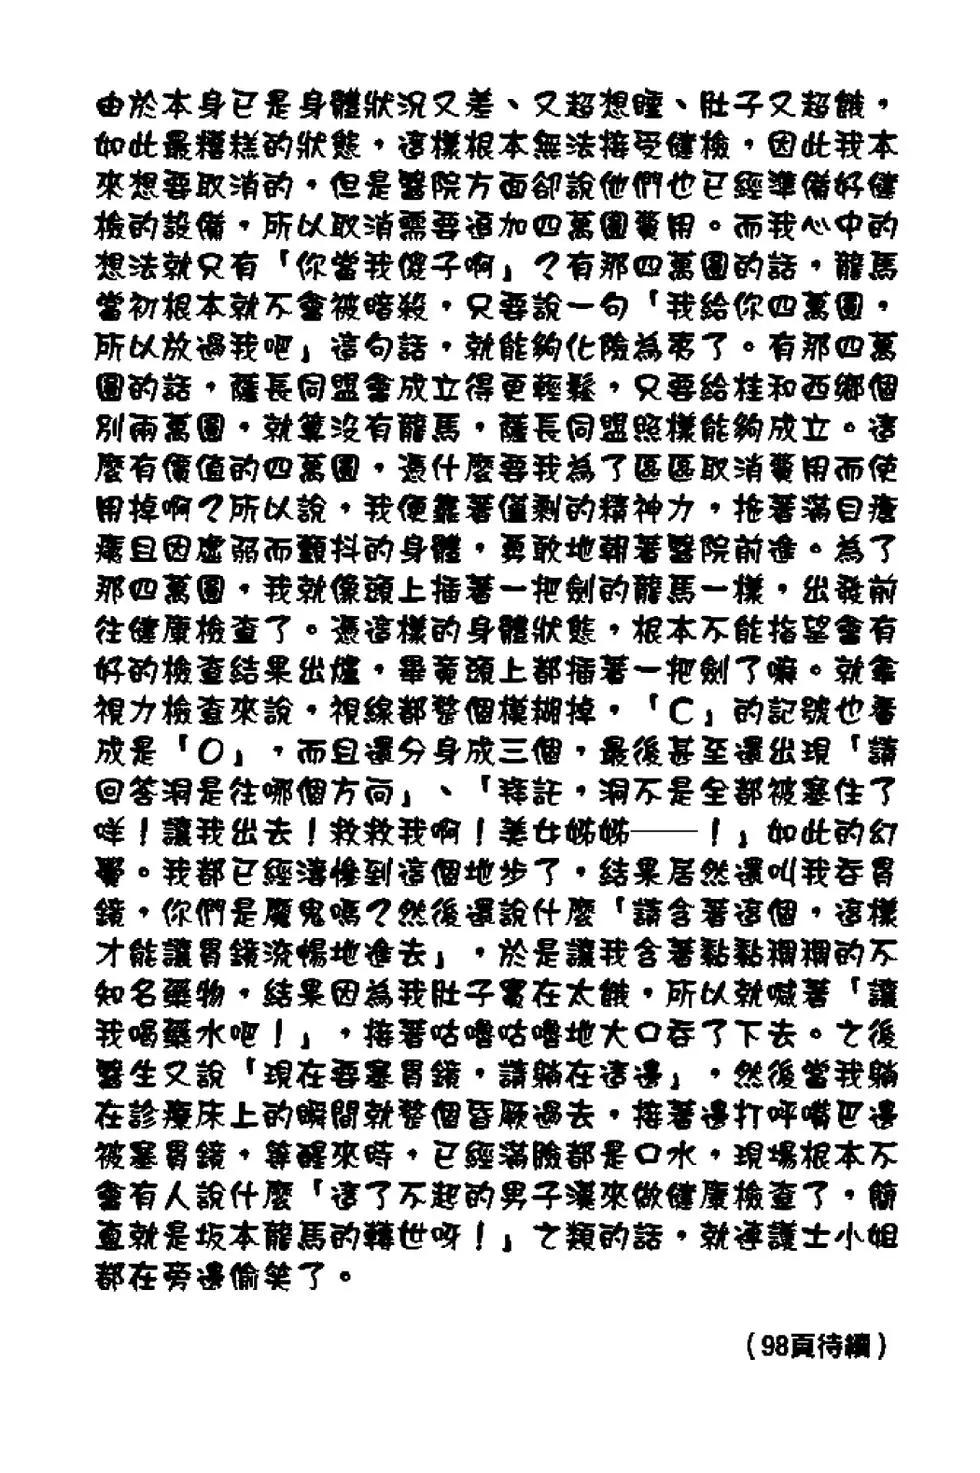 由於本身已是身體狀況又差、又超想睡、肚子又超餓，
如此最糟糕的狀態，這樣根本無法接受健檢，因此我本
來想要取消的，但是醫院方面卻說他們也已經準備好健
檢的設備，所以取消需要追加四萬圓費用。而我心中的
想法就只有「你當我傻子啊」？有那四萬圓的話，龍馬
當初根本就不會被暗殺，只要說一句「我給你四萬圓，
所以放過我吧」這句話，就能夠化險為夷了。有那四萬
圓的話，薩長同盟會成立得更輕鬆，只要給桂和西鄉個
別兩萬圓，就算沒有龍馬，薩長同盟照樣能夠成立。這
麼有價值的四萬圓，憑什麼要我為了區區取消費用而使
用掉啊？所以說，我便靠著僅剩的精神力，拖著滿目瘡
痍且因虛弱而顫抖的身體，勇敢地朝著醫院前進。為了
那四萬圓，我就像頭上插著一把劍的龍馬一樣，出發前
往健康檢查了。憑這樣的身體狀態，根本不能指望會有
好的檢查結果出爐，畢竟頭上都插著一把劍了嘛。就拿
視力檢查來說，視線都整個模糊掉，「C」的記號也看
成是「O」，而且還分身成三個，最後甚至還出現「請
回答洞是往哪個方向」、「拜託，洞不是全都被塞住了
咩！讓我出去！救救我啊！美女姊姊——！」如此的幻
覺。我都已經淒慘到這個地步了，結果居然還叫我吞胃
鏡，你們是魔鬼嗎？然後還說什麼「請含著這個，這樣
才能讓胃鏡流暢地進去」，於是讓我含著黏黏稠稠的不
知名藥物，結果因為我肚子實在太餓，所以就喊著「讓
我喝藥水吧！」，接著咕嚕咕嚕地大口吞了下去。之後
醫生又說「現在要塞胃鏡，請躺在這邊」，然後當我躺
在診療床上的瞬間就整個昏厥過去，接著邊打呼嘴巴邊
被塞胃鏡，等醒來時，已經滿臉都是口水，現場根本不
會有人說什麼「這了不起的男子漢來做健康檢查了，簡
直就是坂本龍馬的轉世呀！」之類的話，就連護士小姐
都在旁邊偷笑了。
（98頁待續）